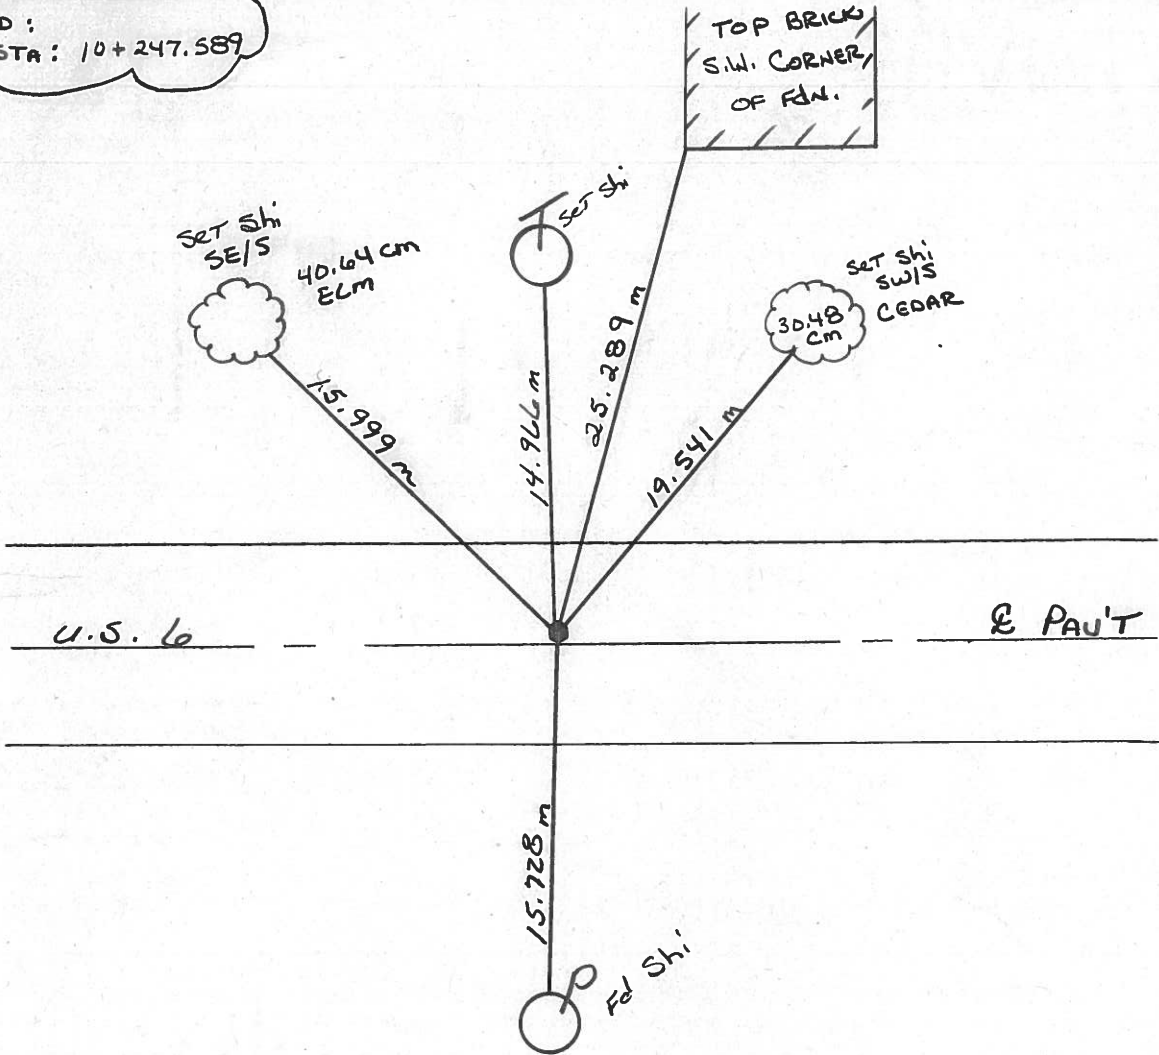 D:
STA: 10+247.589
TOP BRICK
S.W. CORNER
OF Fdn.
Set Shi
Set Shi
SE/S
40.64 cm
ELM
Set Shi
SW/S
CEDAR
30.48
cm
15.999 m
14.966 m
25.289 m
19.541 m
U.S. 6
℄ PAV'T
15.728 m
Fd Shi